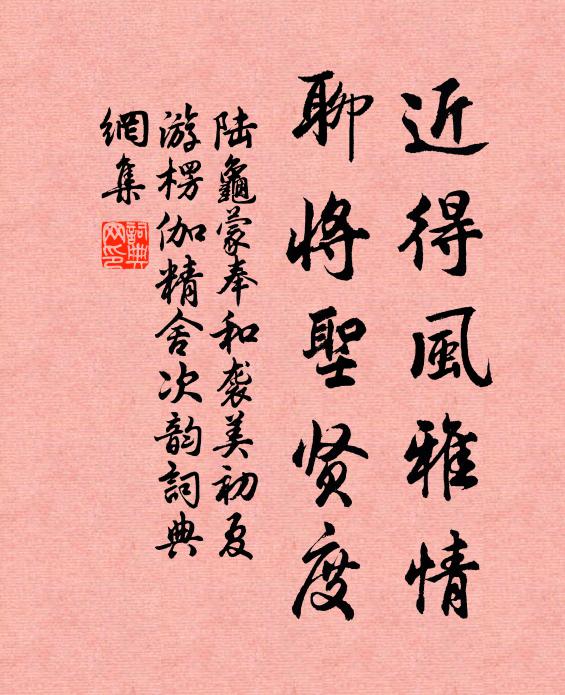 近得風雅情
聊将聖贤度
陆龜蒙奉和袭美初夏
游楞伽精舍次韵詞典
網集
詞典
网印